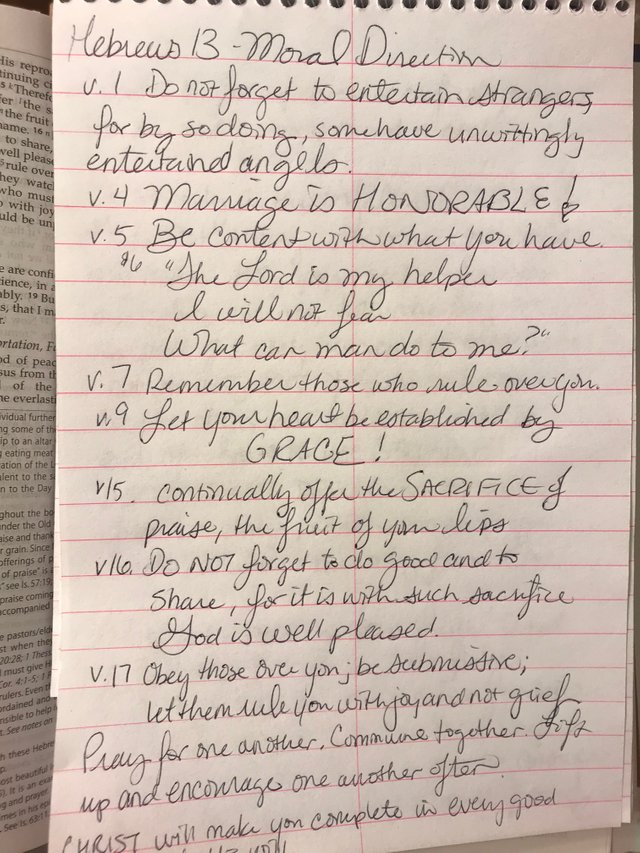 Hebrews 13 - Moral Direction
v. 1 Do not forget to entertain strangers,
for by so doing, some have unwittingly
entertained angels.
v. 4 Marriage is HONORABLE!
v. 5 Be content with what you have.
$6 "The Lord is my helper
I will not fear
What can man do to me?"
v. 7 Remember those who rule over you.
v. 9 Let your heart be established by
GRACE!
v15. continually offer the SACRIFICE of
praise, the fruit of your lips
v16. DO NOT forget to do good and to
share, for it is with such sacrifice
God is well pleased.
v. 17 Obey those over you; be submissive;
let them rule you with joy and not grief
Pray for one another. Commune together. Lift
up and encourage one another often.
CHRIST will make you complete in every good
his repro
tinuing ci
Theref
fer the s
the fruit
name.
to share,
well please
rule over
they watc
who must
with joy
uld be un
e are confi
ience, in a
ably. 19 Bu
s, that I m
r.
ortation, Fa
od of peac
sus from th
of the
he everlast
ividual further
ng some of the
ip to an altar
g eating meat
ation of the L
alent to the s
n to the Day
ghout the bo
under the Old
aise and thank
r grain. Since
offerings of p
of praise" is
" see Is. 57:19;
praise coming
accompanied
e pastors/eld
st when they
20:28; 1 Thess
must give H
Cor. 4:1-5; 1
rulers. Even i
ordained and
nsible to help
t. See notes on
h these Hebre
p.
ost beautiful
5). It is an exa
g and prayer
mes in his ep
. See Is. 63:11